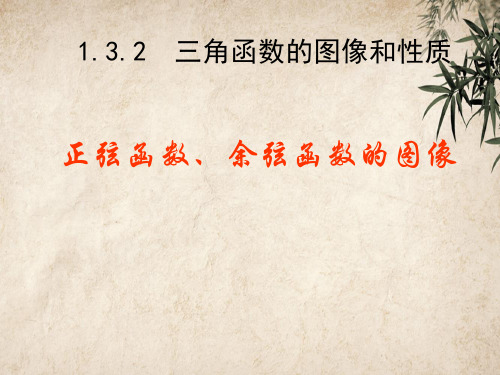 1.3.2 三角函数的图像和性质
正弦函数、余弦函数的图像